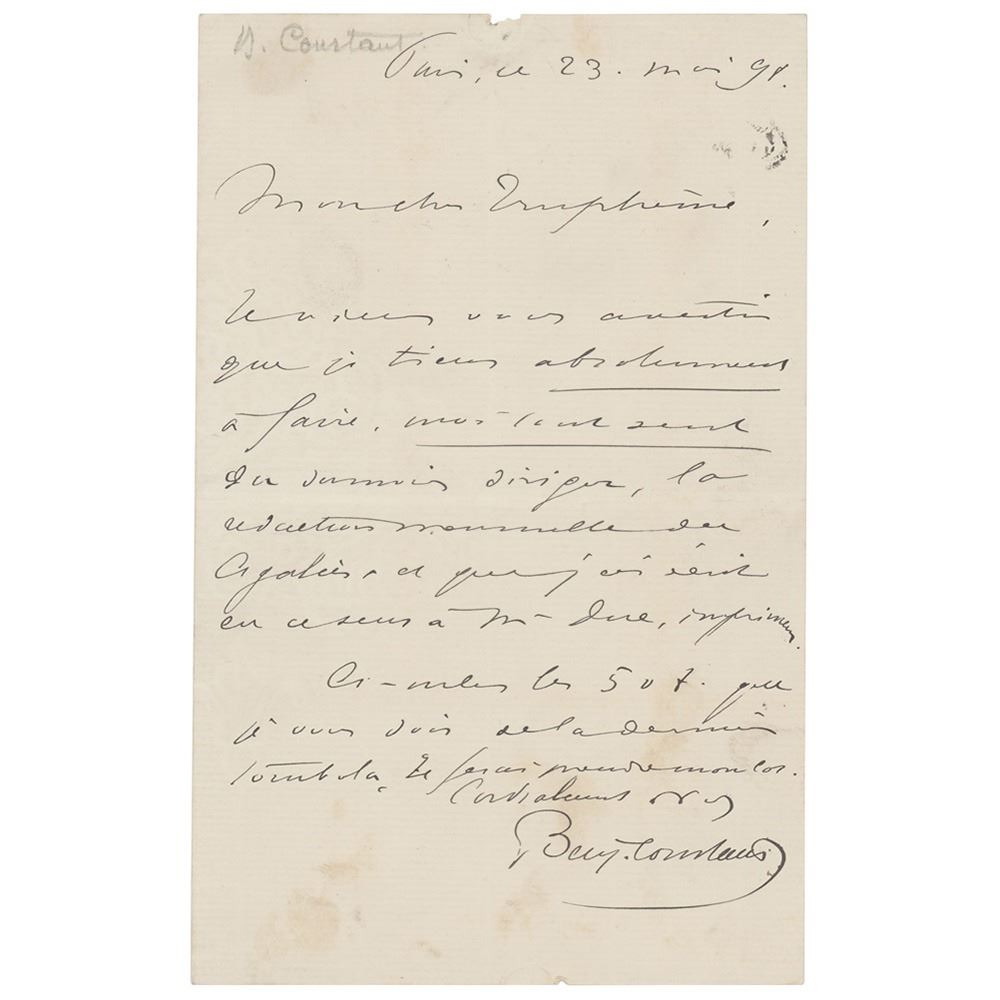 B. Constant
Paris, ce 23. mai 91.
Mon cher Truphème,
Je viens vous avertir
que je tiens absolument
à faire, moi tout seul
du dîner, la
rédaction mensuelle des
Cigaliers, et que j'ai écrit
en ce sens à Mr Duc, imprimeur.
Ci-inclus les 50 f. que
je vous dois de la dernière
tombola, Je ferai prendre mon lot.
Cordialement à vous
Benj. Constant